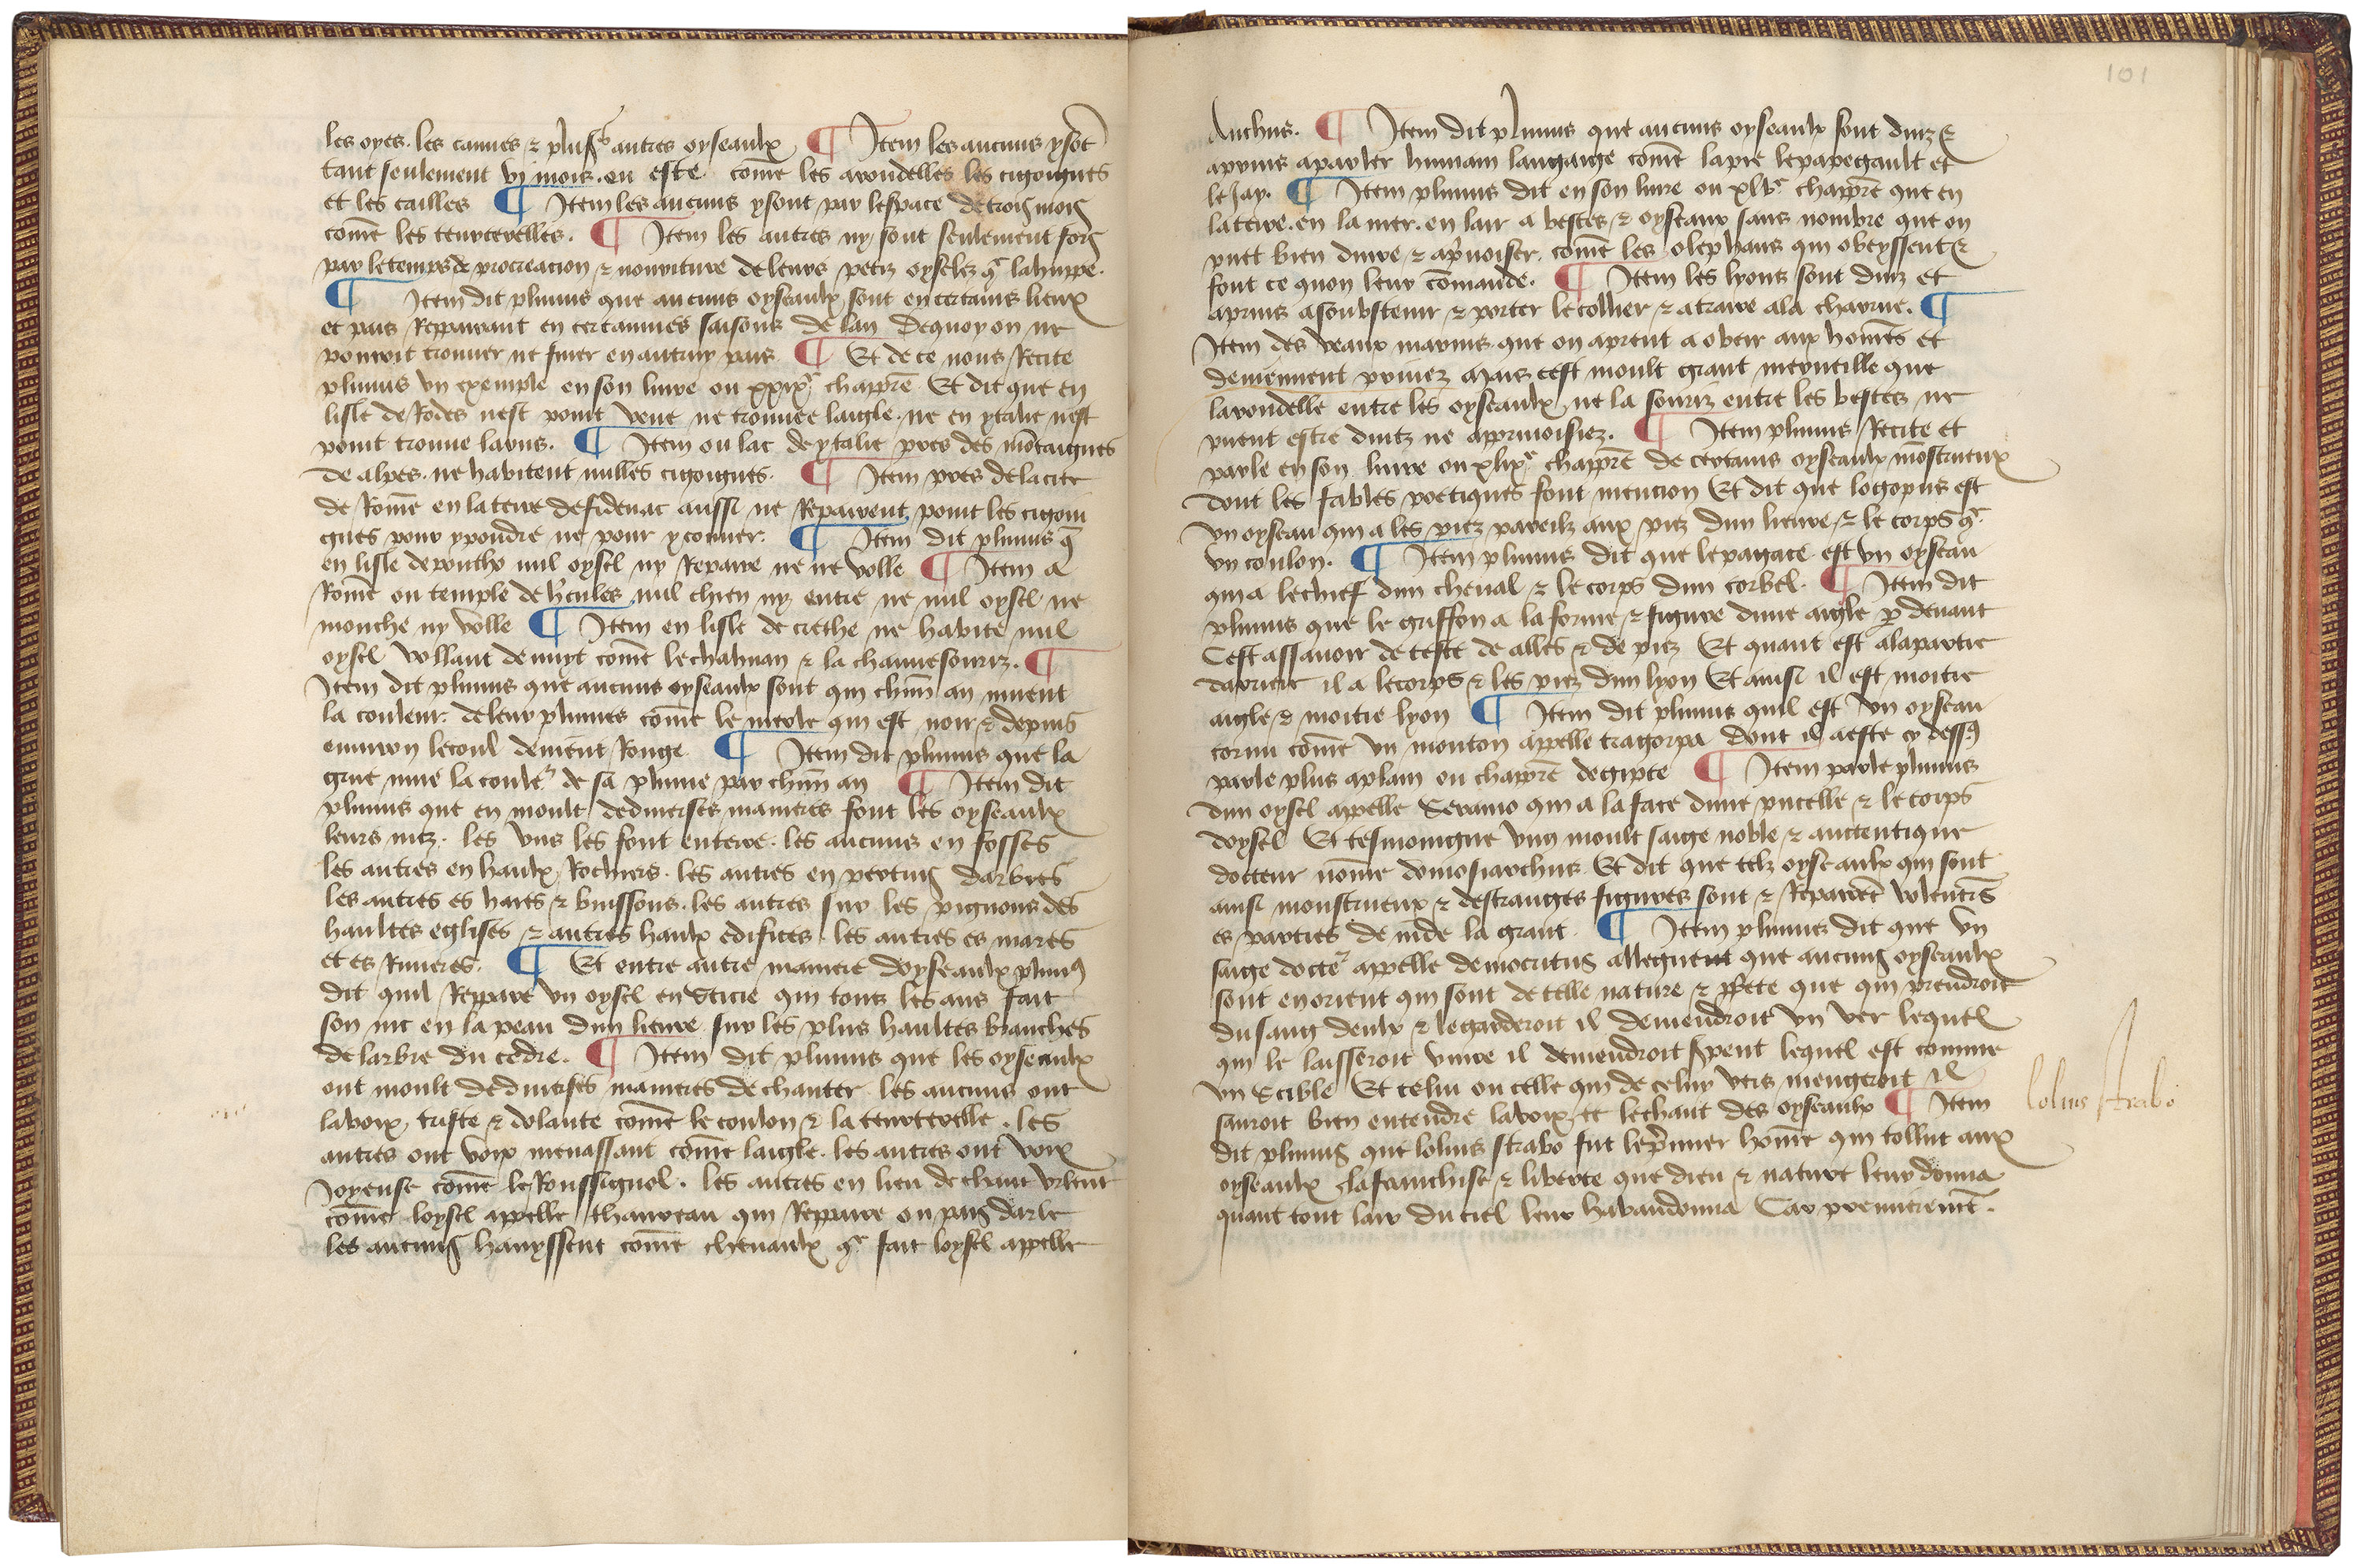 les oyes. les cannes ⁊ plusˢ autres oyseaulx ¶ Item les aucuns ysōt
tant seulement vj mois. en este. cōme les arondelles les cigoignes
et les cailles ¶ Item les aucuns ysont par lespace de trois mois
cōme les teurterelles. ¶ Item les autres ny sont seulement fors
par letemps de procreacion ⁊ nouriture de leurs petiz oyseletz q̄ lahuppe.
¶ Item dit plinius que aucuns oyseaulx sont en certains lieux
et pais Repairant en certainnes saisons de lan dequoy on ne
pouroit trouuer ne finer en autruy pais ¶ Et de ce nous Recite
plinius vn exemple en son liure ou xxixᵉ chappr̄e Et dit que en
lisle de Rodes nest point veue ne trouuee laigle. ne en ytalie nest
point trouue larus. ¶ Item ou lac de ytalie pres des mōtaignes
de alpes. ne habitent nulles cigoignes. ¶ Item pres de la cite
de Rōme en la terre de fidenac aussi ne Repairent point les cigoin
gnes pour ypondre ne pour ycouuer. ¶ Item dit plinius q̄
en lisle de ponthx nul oysel ny Repaire ne ne volle ¶ Item a
Rōme ou temple de h̄cules nul chien ny entre ne nul oysel ne
mouche ny volle ¶ Item en lisle de crethe ne habite nul
oysel vollant de nuyt cōme lechahuan ⁊ la chauuesouriz. ¶
Item dit plinius que aucuns oyseaulx sont qui chūn an muent
la couleur. de leur plumes cōme le merle qui est noir ⁊ depuis
enuiron lecoul deuient Rouge ¶ Item dit plinius que la
grue mue la coulēr de sa plume par chūn an ¶ Item dit
plinius que en moult dediuerses manieres font les oyseaulx
leurs nitz. les vns les font enterre. les aucuns en fosses
les autres en haulx Rochiers. les autres en pertuis darbres
les autres es haies ⁊ buissons. les autres sur les pignons des
haultes eglises ⁊ autres haulx edifices. les autres es mares
et es Riuieres. ¶ Et entre autre maniere doyseaulx pliniꝰ
dit quil Repaire vn oysel en Sticie qui tous les ans fait
son nit en la peau dun lieure sur les plus haultes branches
de larbre du cedre. ¶ Item dit plinius que les oyseaulx
ont moult dediuerses manieres de chanter les aucuns ont
la voix triste ⁊ dolante cōme le coulon ⁊ la teurterelle. les
autres ont voix menassant cōme laigle. les autres ont voix
Joyeuse cōme le Roussignol. les autres en lieu de chant vrlent
cōme loysel appelle thaureau qui Repaire ou pais darle
les aucuns hanyssent cōme cheuaulx q̄ fait loysel appelle
101
Anthus. ¶ Item dit plinius que aucuns oyseaulx sont duiz ⁊
aprins aparler humain langaige cōme lapie lepapegault et
le Jay. ¶ Item plinius dit en son liure ou xlvᵉ chappr̄e que en
laterre. en la mer. en lair a bestes ⁊ oyseaux sans nombre que on
puet bien duire ⁊ apr̄uoiser. cōme les olephans qui obeyssent ⁊
font ce quon leur cōmande. ¶ Item les lyons sont duiz et
aprins asoubstenir ⁊ porter le collier ⁊ atraire ala charrue. ¶
Item des veaux marins que on aprent a obeir aux hōmes et
deuiennent priuez Mais cest moult grant merueille que
larondelle entre les oyseaulx ne la souriz entre les bestes ne
puent estre duitz ne apriuoisiez. ¶ Item plinius Recite et
parle en son liure ou xlixᵉ chappr̄e de certains oyseaulx mōstrueux
dont les fables poetiques font mencion Et dit que logopus est
vn oyseau qui a les piez pareilz aux piez dun lieure ⁊ le corps q̄
vn coulon. ¶ Item plinius dit que lepagace est vn oyseau
qui a lechief dun cheual ⁊ le corps dun corbel. ¶ Item dit
plinius que le griffon a la forme ⁊ figure dune aigle p̄ deuant
Cest assauoir de teste de alles ⁊ de piez Et quant est alapartie
darriere il a lecorps ⁊ les piez dun lyon Et ainsi il est moitie
aigle ⁊ moitie lyon ¶ Item dit plinius quil est vn oyseau
cornu cōme vn mouton appelle tragorpa dont il aeste cy dessꝰ
parle plus aplain ou chappr̄e degipte ¶ Item parle plinius
dun oysel appelle Seraino qui a la face dune pucelle ⁊ le corps
doysel Et tesmoingne vng moult saige noble ⁊ auctentique
docteur nōme domosiarchus Et dit que telz oyseaulx qui sont
ainsi monstrueux ⁊ destranges figures sont ⁊ Repairēt volentiers
es parties de inde la grant. ¶ Item plinius dit que vn
saige doctēr appelle democritus alleguent que aucuns oyseaulx
sont en orient qui sont de telle nature ⁊ p̄fete que qui prendroit
du sang deulx ⁊ le garderoit il deuiendroit vn ver lequel
qui le laisseroit viure il deuiendroit s̄pent lequel est comme
vn Scible Et celui ou celle qui de celuy vers mengeroit il
sauroit bien entendre la voix et lechant des oyseaulx ¶ Item
dit plinius que lolius strabo fut lep̄mier hōme qui tollut aux
oyseaulx la franchise ⁊ liberte que dieu ⁊ nature leur donna
quant tout lair du ciel leur habandonna Car premieremēt.
lolius strabo